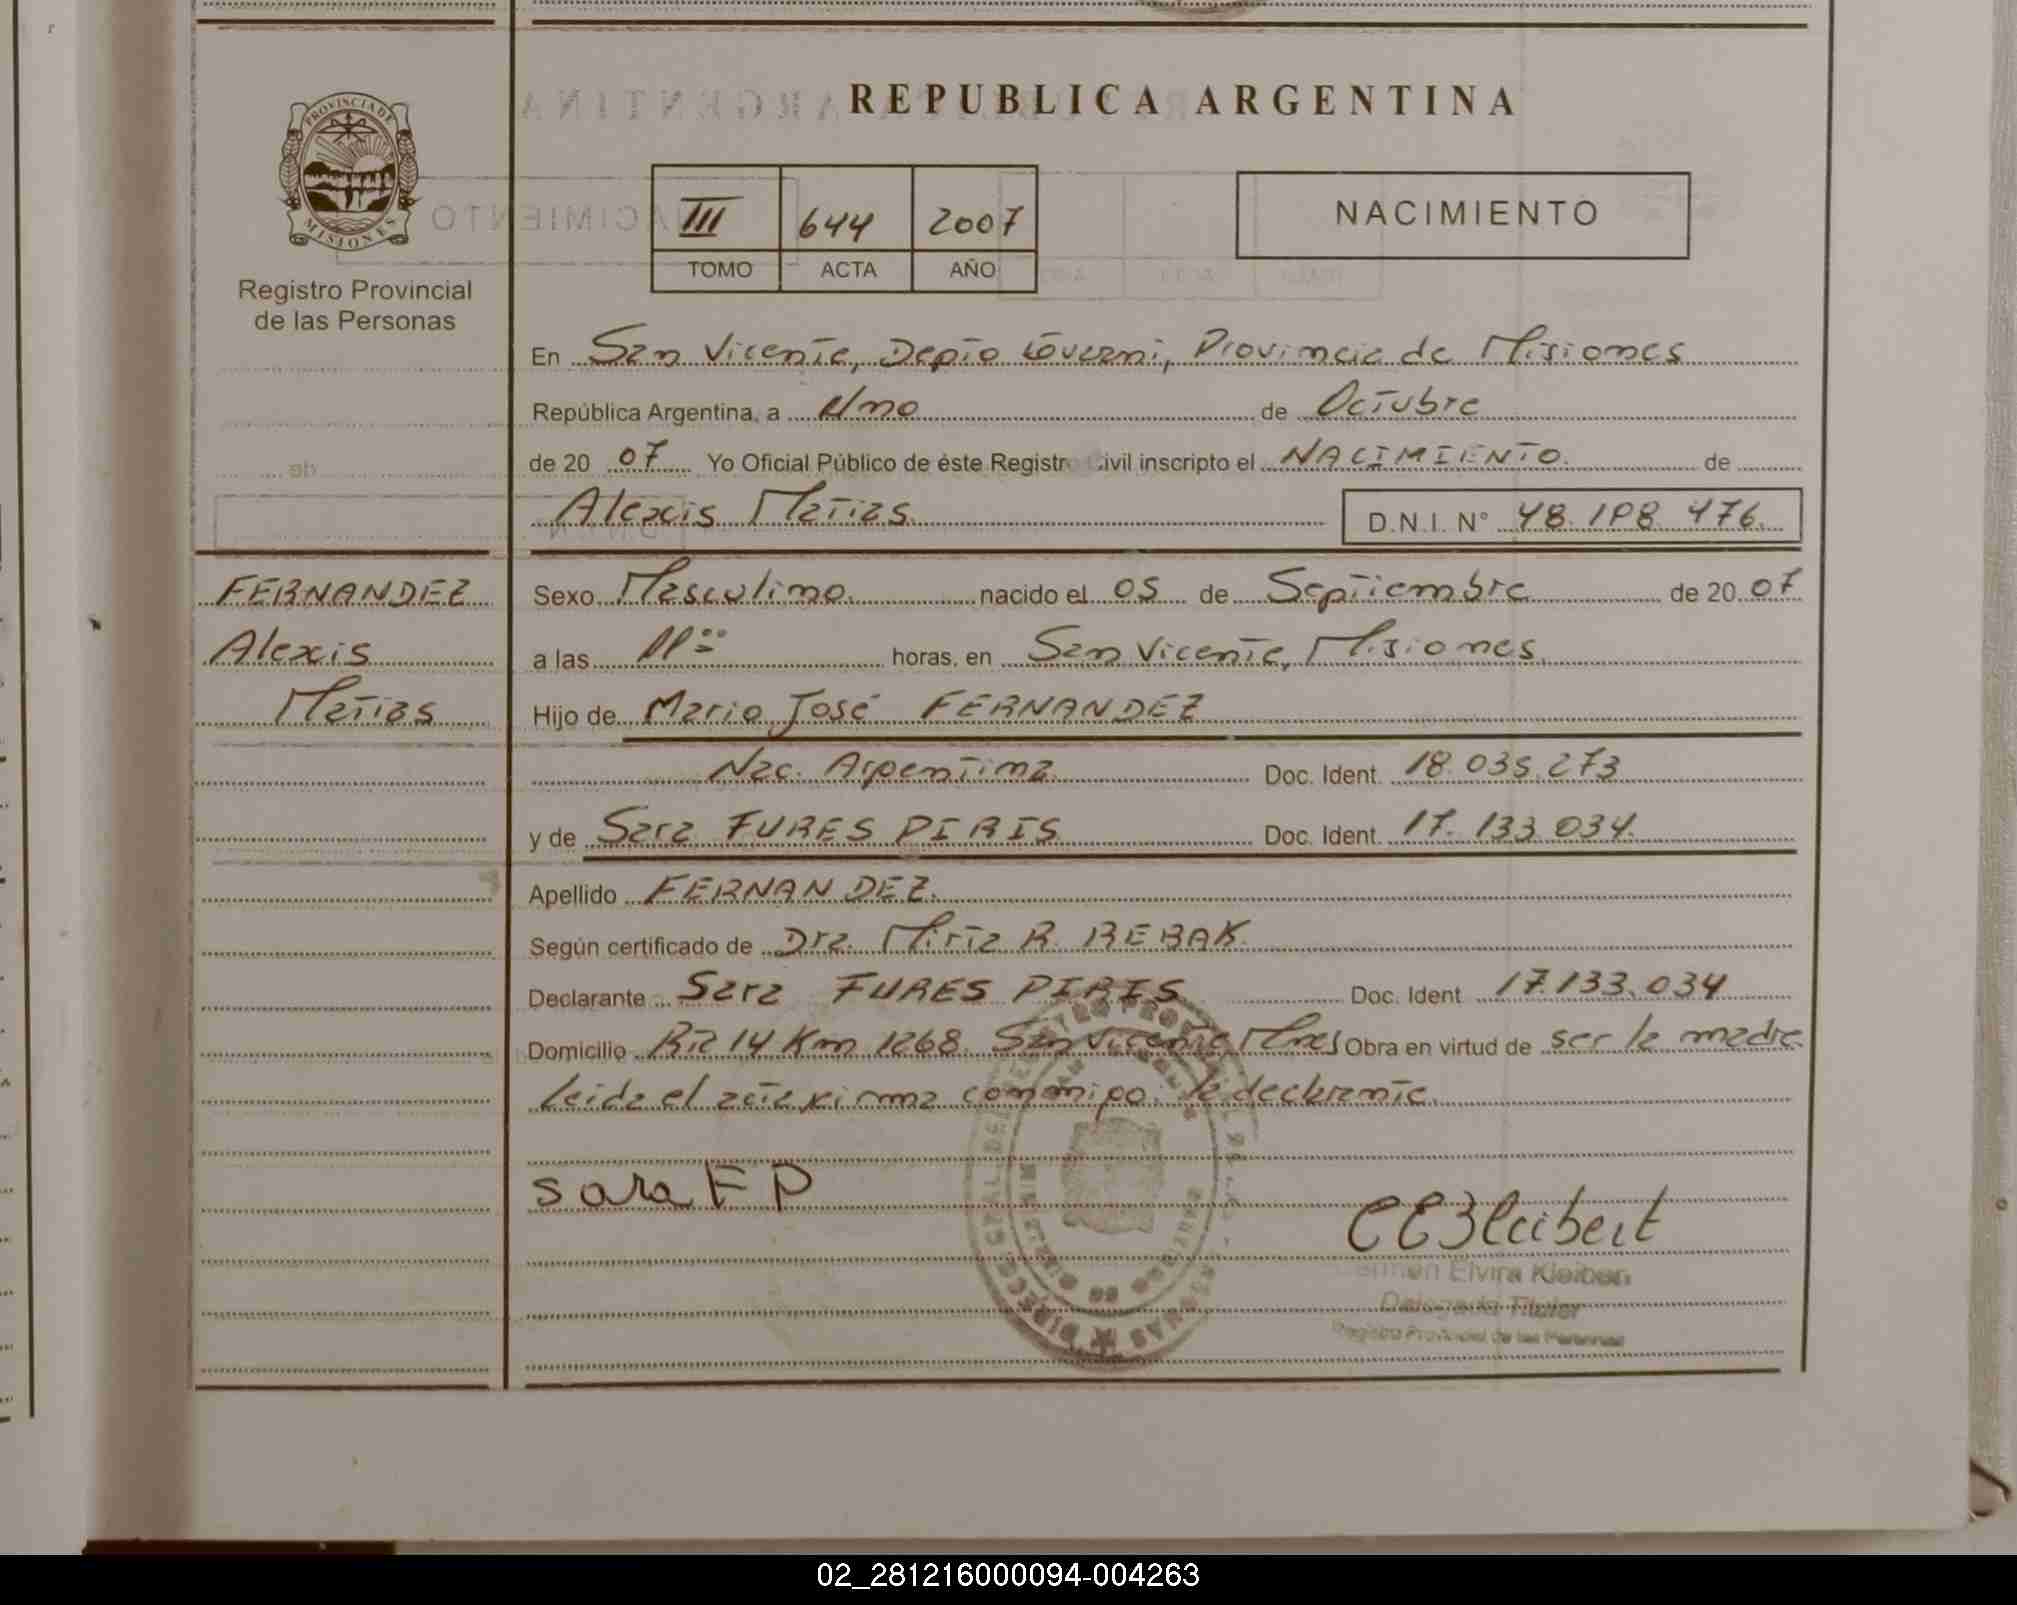 REPUBLICA ARGENTINA
PROVINCIA DE MISIONES
Registro Provincial
de las Personas
III 644 2007
TOMO ACTA AÑO
NACIMIENTO
En San Vicente, Depto Guaraní, Provincia de Misiones
República Argentina, a Uno de Octubre
de 20 07 Yo Oficial Público de éste Registro Civil inscripto el NACIMIENTO. de
Alexis Matias D.N.I. N° 48.198.476.
FERNANDEZ
Alexis
Matias
Sexo Masculino. nacido el 05 de Septiembre de 20 07
a las horas, en San Vicente, Misiones.
Hijo de Mario José FERNANDEZ
Nac. Argentina Doc. Ident. 18.035.273
y de Sara FURES PIRIS Doc. Ident. 17.133.034.
Apellido FERNANDEZ.
Según certificado de Dra. Mirta R. REBAK
Declarante Sara FURES PIRIS Doc. Ident 17.133.034
Domicilio RN 14 Km 1268. San Vicente, Mnes Obra en virtud de ser la madre
Leida el acta firma conmigo la declarante.
sara F P
CEKleibert
Carmen Elvira Kleibert
Delegada Titular
Registro Provincial de las Personas
02_281216000094-004263